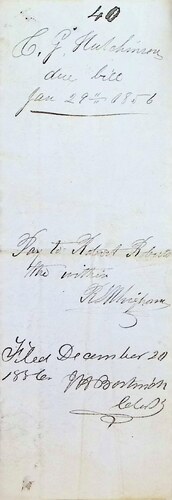 40
C. J. Hutchinson
due bill
Jan 29th 1856
Pay to Robert Roberts
the within
Filed December 20
1856
Clerk